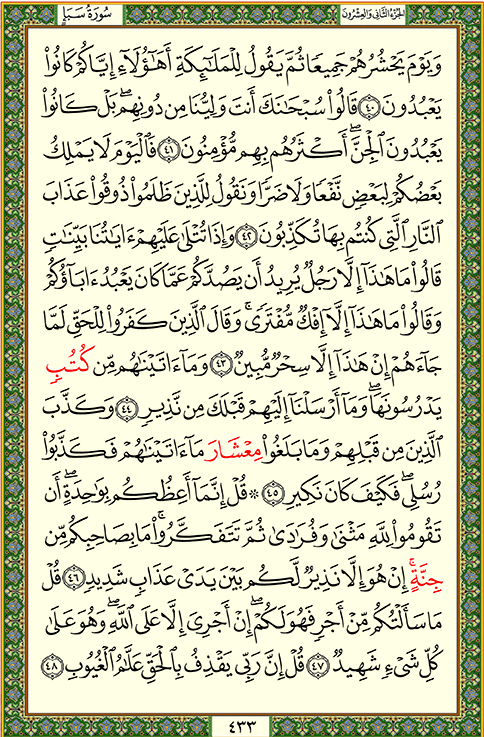 الجزء الثاني والعشرون
سورة سبإ
وَيَوْمَ يَحْشُرُهُمْ جَمِيعًا ثُمَّ يَقُولُ لِلْمَلَٰٓئِكَةِ أَهَٰٓؤُلَآءِ إِيَّاكُمْ كَانُوا۟
يَعْبُدُونَ ٤٠ قَالُوا۟ سُبْحَٰنَكَ أَنتَ وَلِيُّنَا مِن دُونِهِم ۖ بَلْ كَانُوا۟
يَعْبُدُونَ ٱلْجِنَّ ۖ أَكْثَرُهُم بِهِم مُّؤْمِنُونَ ٤١ فَٱلْيَوْمَ لَا يَمْلِكُ
بَعْضُكُمْ لِبَعْضٍ نَّفْعًا وَلَا ضَرًّا وَنَقُولُ لِلَّذِينَ ظَلَمُوا۟ ذُوقُوا۟ عَذَابَ
ٱلنَّارِ ٱلَّتِى كُنتُم بِهَا تُكَذِّبُونَ ٤٢ وَإِذَا تُتْلَىٰ عَلَيْهِمْ ءَايَٰتُنَا بَيِّنَٰتٍ
قَالُوا۟ مَا هَٰذَآ إِلَّا رَجُلٌ يُرِيدُ أَن يَصُدَّكُمْ عَمَّا كَانَ يَعْبُدُ ءَابَآؤُكُمْ
وَقَالُوا۟ مَا هَٰذَآ إِلَّآ إِفْكٌ مُّفْتَرًى ۚ وَقَالَ ٱلَّذِينَ كَفَرُوا۟ لِلْحَقِّ لَمَّا
جَآءَهُمْ إِنْ هَٰذَآ إِلَّا سِحْرٌ مُّبِينٌ ٤٣ وَمَآ ءَاتَيْنَٰهُم مِّن كُتُبٍ
يَدْرُسُونَهَا ۖ وَمَآ أَرْسَلْنَآ إِلَيْهِمْ قَبْلَكَ مِن نَّذِيرٍ ٤٤ وَكَذَّبَ
ٱلَّذِينَ مِن قَبْلِهِمْ وَمَا بَلَغُوا۟ مِعْشَارَ مَآ ءَاتَيْنَٰهُمْ فَكَذَّبُوا۟
رُسُلِى ۖ فَكَيْفَ كَانَ نَكِيرِ ٤٥ ۞ قُلْ إِنَّمَآ أَعِظُكُم بِوَٰحِدَةٍ ۖ أَن
تَقُومُوا۟ لِلَّهِ مَثْنَىٰ وَفُرَٰدَىٰ ثُمَّ تَتَفَكَّرُوا۟ ۚ مَا بِصَاحِبِكُم مِّن
جِنَّةٍ ۚ إِنْ هُوَ إِلَّا نَذِيرٌ لَّكُم بَيْنَ يَدَىْ عَذَابٍ شَدِيدٍ ٤٦ قُلْ
مَا سَأَلْتُكُم مِّنْ أَجْرٍ فَهُوَ لَكُمْ ۖ إِنْ أَجْرِىَ إِلَّا عَلَى ٱللَّهِ ۖ وَهُوَ عَلَىٰ
كُلِّ شَىْءٍ شَهِيدٌ ٤٧ قُلْ إِنَّ رَبِّى يَقْذِفُ بِٱلْحَقِّ عَلَّٰمُ ٱلْغُيُوبِ ٤٨
٤٣٣